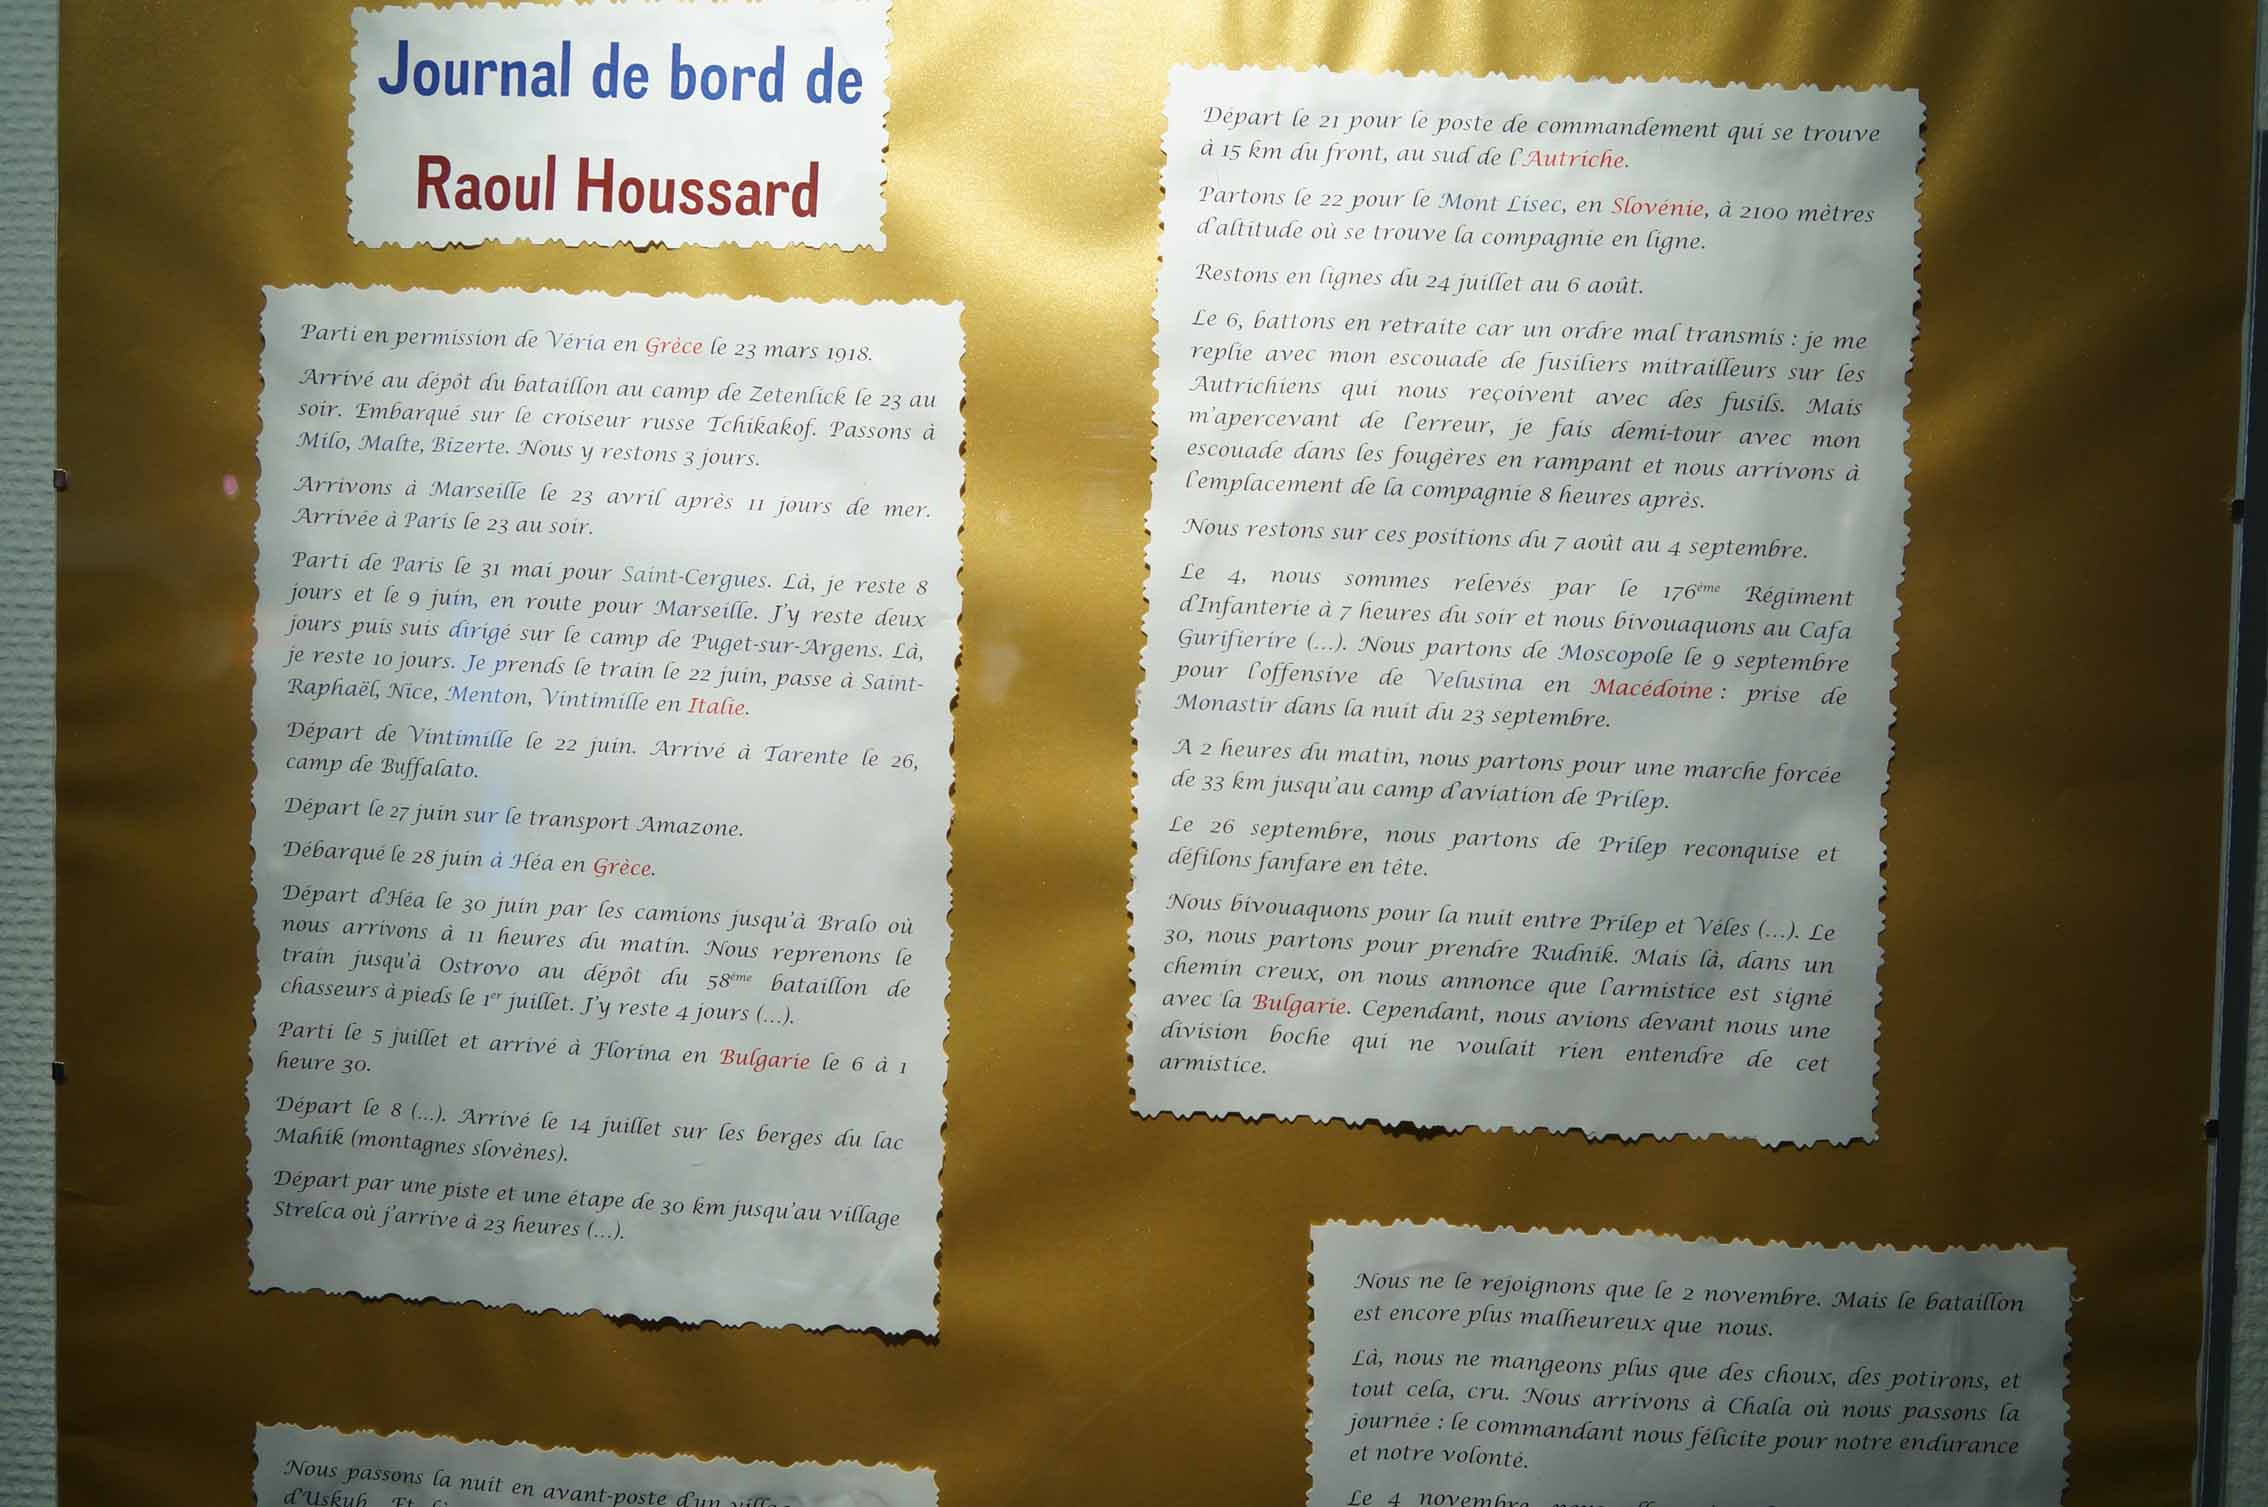 Journal de bord de
Raoul Houssard
Parti en permission de Véria en Grèce le 23 mars 1918.
Arrivé au dépôt du bataillon au camp de Zetenlick le 23 au
soir. Embarqué sur le croiseur russe Tchikakof. Passons à
Milo, Malte, Bizerte. Nous y restons 3 jours.
Arrivons à Marseille le 23 avril après 11 jours de mer.
Arrivée à Paris le 23 au soir.
Parti de Paris le 31 mai pour Saint-Cergues. Là, je reste 8
jours et le 9 juin, en route pour Marseille. J'y reste deux
jours puis suis dirigé sur le camp de Puget-sur-Argens. Là,
je reste 10 jours. Je prends le train le 22 juin, passe à Saint-
Raphaël, Nice, Menton, Vintimille en Italie.
Départ de Vintimille le 22 juin. Arrivé à Tarente le 26,
camp de Buffalato.
Départ le 27 juin sur le transport Amazone.
Débarqué le 28 juin à Héa en Grèce.
Départ d'Héa le 30 juin par les camions jusqu'à Bralo où
nous arrivons à 11 heures du matin. Nous reprenons le
train jusqu'à Ostrovo au dépôt du 58ème bataillon de
chasseurs à pieds le 1er juillet. J'y reste 4 jours (...).
Parti le 5 juillet et arrivé à Florina en Bulgarie le 6 à 1
heure 30.
Départ le 8 (...). Arrivé le 14 juillet sur les berges du lac
Mahik (montagnes slovènes).
Départ par une piste et une étape de 30 km jusqu'au village
Strelca où j'arrive à 23 heures (...).
Nous passons la nuit en avant-poste d'un
d'Uskub. Et
Départ le 21 pour le poste de commandement qui se trouve
à 15 km du front, au sud de l'Autriche.
Partons le 22 pour le Mont Lisec, en Slovénie, à 2100 mètres
d'altitude où se trouve la compagnie en ligne.
Restons en lignes du 24 juillet au 6 août.
Le 6, battons en retraite car un ordre mal transmis : je me
replie avec mon escouade de fusiliers mitrailleurs sur les
Autrichiens qui nous reçoivent avec des fusils. Mais
m'apercevant de l'erreur, je fais demi-tour avec mon
escouade dans les fougères en rampant et nous arrivons à
l'emplacement de la compagnie 8 heures après.
Nous restons sur ces positions du 7 août au 4 septembre.
Le 4, nous sommes relevés par le 176ème Régiment
d'Infanterie à 7 heures du soir et nous bivouaquons au Cafa
Gurifierire (...). Nous partons de Moscopole le 9 septembre
pour l'offensive de Velusina en Macédoine : prise de
Monastir dans la nuit du 23 septembre.
A 2 heures du matin, nous partons pour une marche forcée
de 33 km jusqu'au camp d'aviation de Prilep.
Le 26 septembre, nous partons de Prilep reconquise et
défilons fanfare en tête.
Nous bivouaquons pour la nuit entre Prilep et Véles (...). Le
30, nous partons pour prendre Rudnik. Mais là, dans un
chemin creux, on nous annonce que l'armistice est signé
avec la Bulgarie. Cependant, nous avions devant nous une
division boche qui ne voulait rien entendre de cet
armistice.
Nous ne le rejoignons que le 2 novembre. Mais le bataillon
est encore plus malheureux que nous.
Là, nous ne mangeons plus que des choux, des potirons, et
tout cela, cru. Nous arrivons à Chala où nous passons la
journée : le commandant nous félicite pour notre endurance
et notre volonté.
Le 4 novembre